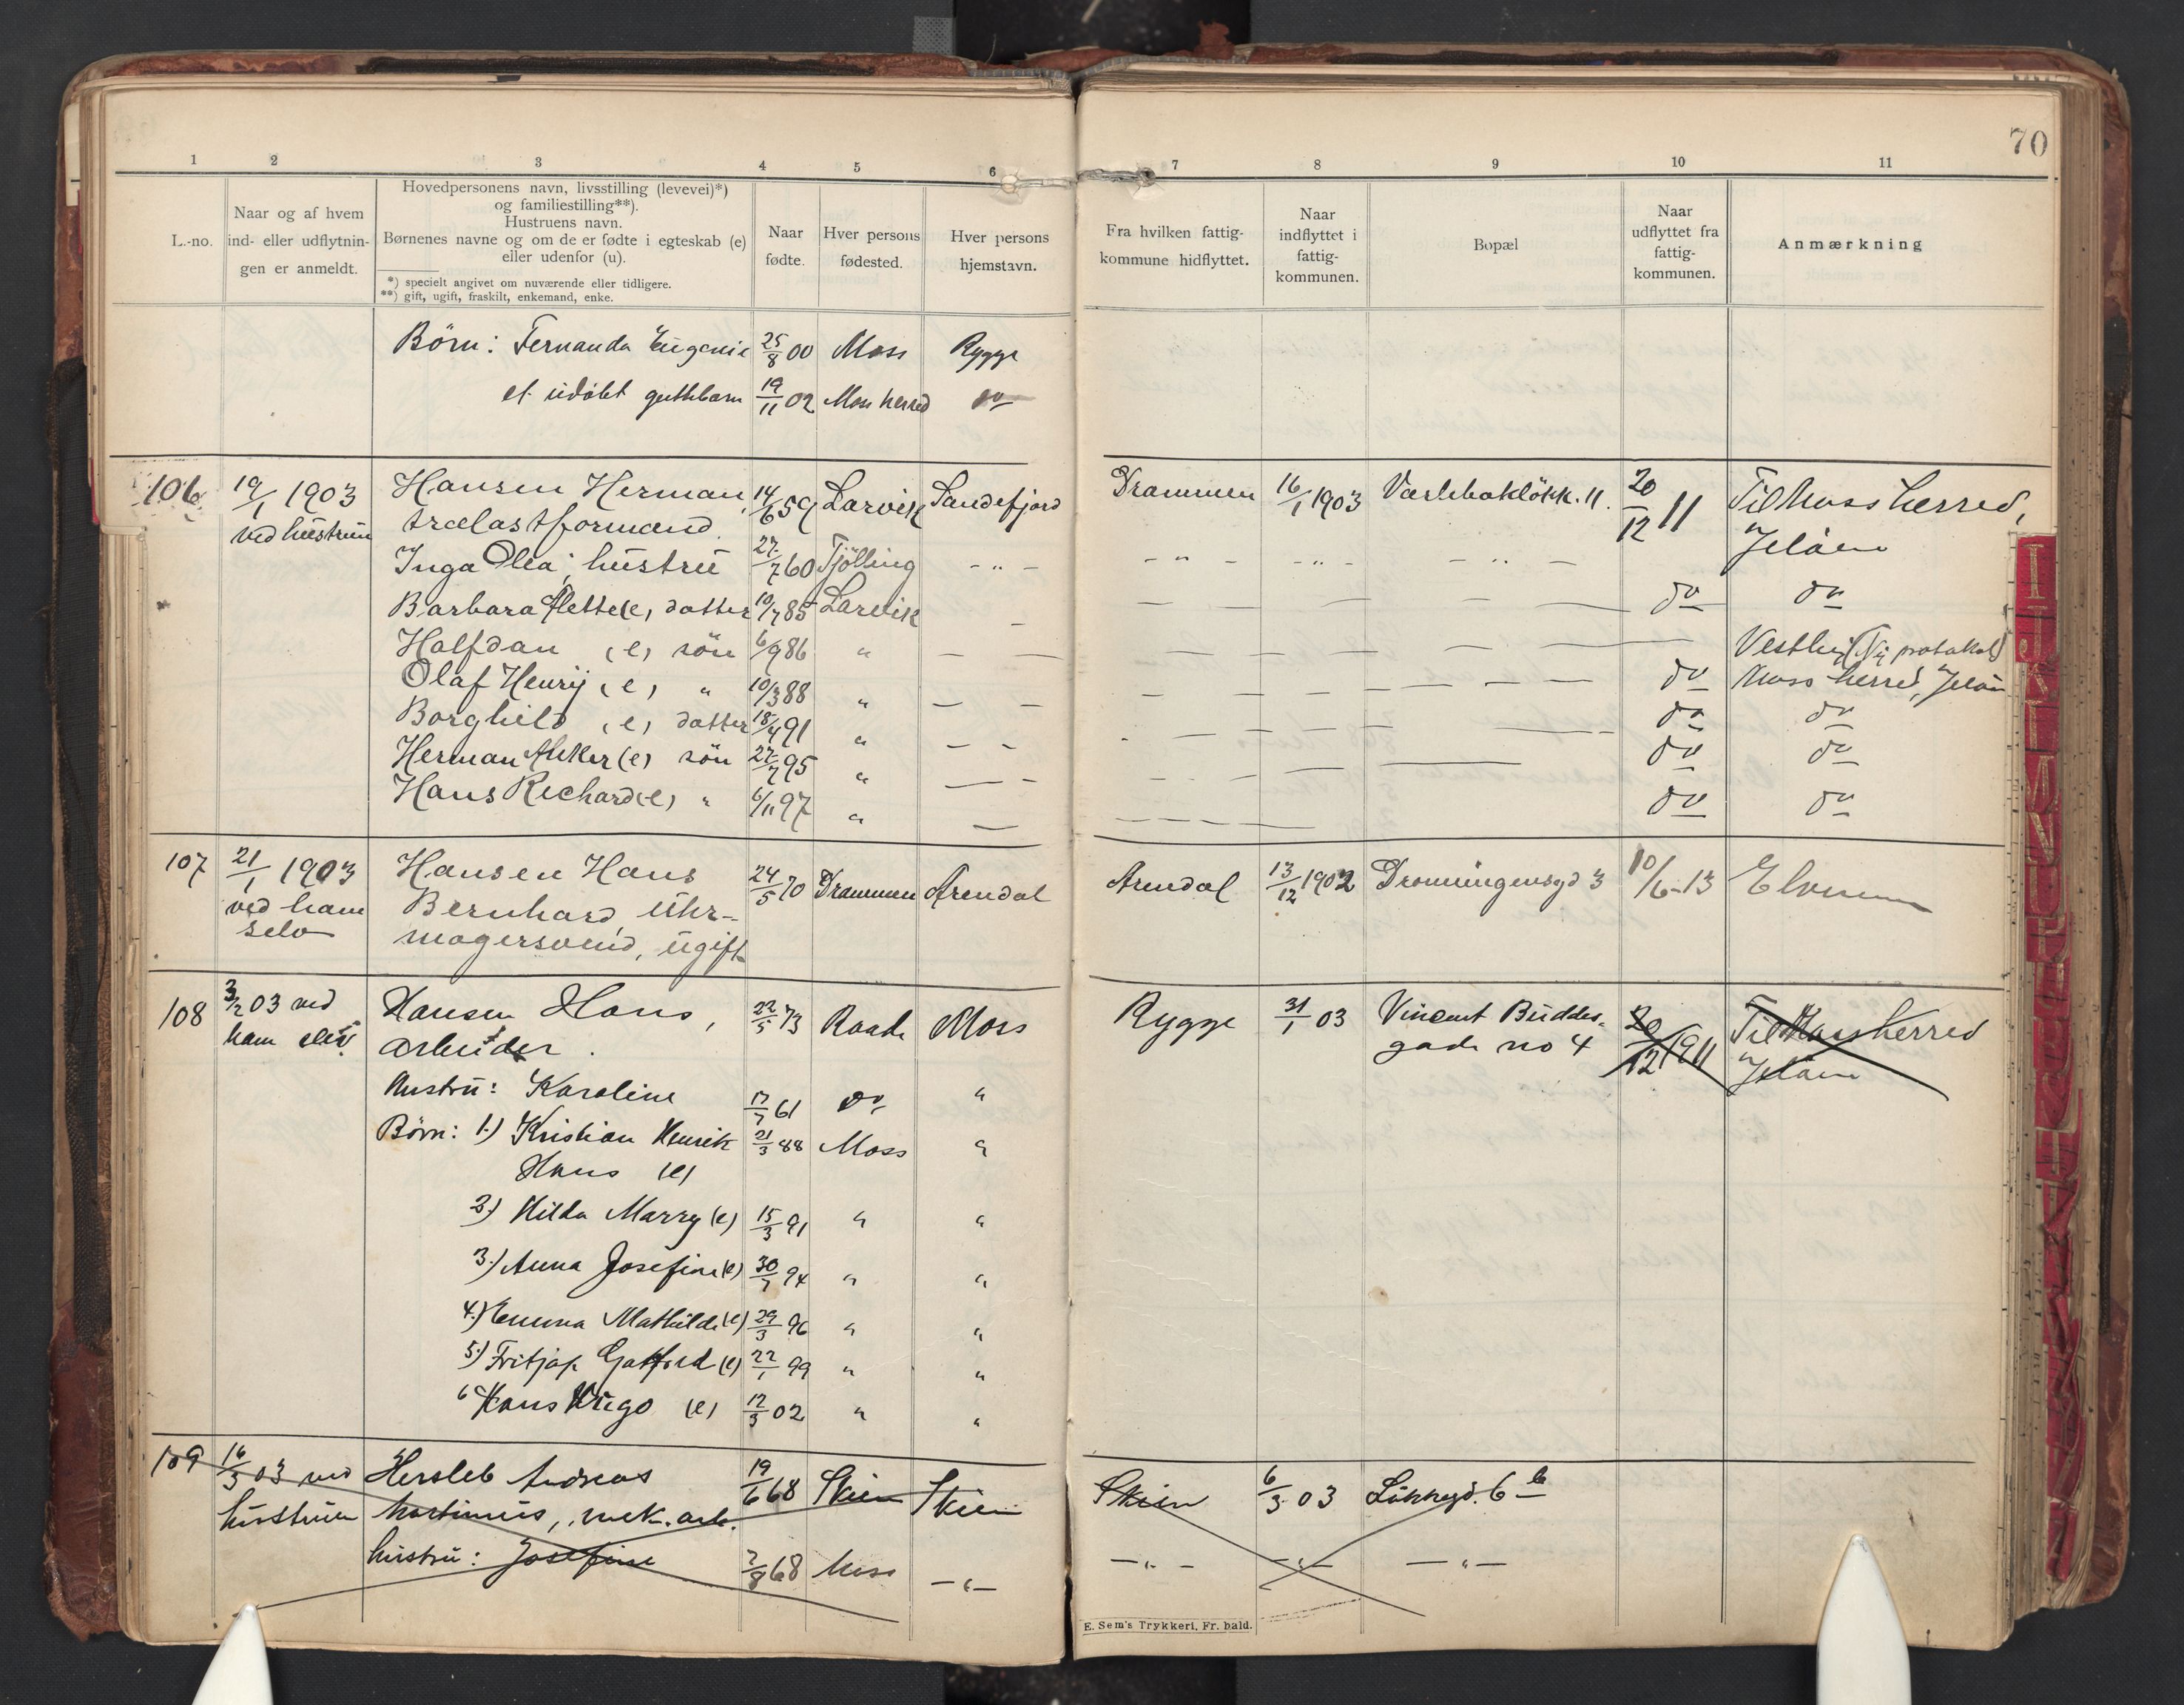 70
1 2 3 4 5 6 7 8 9 10 11
L.-no.
Naar og af hvem
ind- eller udflytnin-
gen er anmeldt.
Hovedpersonens navn, livsstilling (levevei)*)
og familiestilling**).
Hustruens navn.
Børnenes navne og om de er fødte i egteskab (e)
eller udenfor (u).
*) specielt angivet om nuværende eller tidligere.
**) gift, ugift, fraskilt, enkemand, enke.
Naar
fødte.
Hver persons
fødested.
Hver persons
hjemstavn.
Fra hvilken fattig-
kommune hidflyttet.
Naar
indflyttet i
fattig-
kommunen.
Bopæl
Naar
udflyttet fra
fattig-
kommunen.
Anmærkning
Börn: Fernanda Eugenie 25/8 00 Moss Rygge
et udöbt guttebarn 19/11 02 Moss herred do
106 19/1 1903 Hansen Herman, 14/6 59 Larvik Sandefjord Drammen 16/1 1903 Værlebakløkk. 11. 20/12 11 Til Moss herred,
ved hustruen trælastformand. Jeløen
Inga Olea, hustru 27/7 60 Tjölling - " - - " - - " - - " -
Barbara Alette (e) datter 10/7 85 Larvik — — — — do do
Halfdan (e) sön 6/9 86 " — — — — Vestby (Ny protokol)
Olaf Henry (e) " 10/3 88 " — — — — do Moss herred, Jeløen
Borghild (e) datter 18/4 91 " — — — — do do
Herman Anker (e) sön 27/7 95 " — — — — do do
Hans Richard (e) " 6/11 97 " — — — do do
107 21/1 1903 Hansen Hans 24/5 70 Drammen Arendal Arendal 13/12 1902 Dronningensgd 3 10/6-13 Elverum
ved ham Bernhard, uhr-
selv magersvend, ugift
108 3/2 03 ved Hansen Hans, 22/5 73 Raade Moss Rygge 31/1 03 Vincent Buddes- 20/12 1911 Til Moss herred
ham selv. arbeider. gade no 4 Jeløen
Hustru: Karoline 17/7 61 do "
Börn: 1.) Kristian Henrik 21/3 88 Moss "
Hans (e)
2.) Hilda Marry (e) 15/3 91 " "
3.) Anna Josefine (e) 30/7 94 " "
4.) Emma Mathilde (e) 29/3 96 " "
5.) Fritjof (e) 22/1 99 " "
6 Hans (e) 12/3 02 " "
109 16/3 03 ved Hersleb Andreas 19/6 68 Skien Skien Skien 6/3 03 Lökkegd. 6 b
hustruen Martinius, mek. arb.
hustru: Josefine 7/8 68 Moss — " — — " — — " — — " —
E. Sem's Trykkeri, Fr. hald.